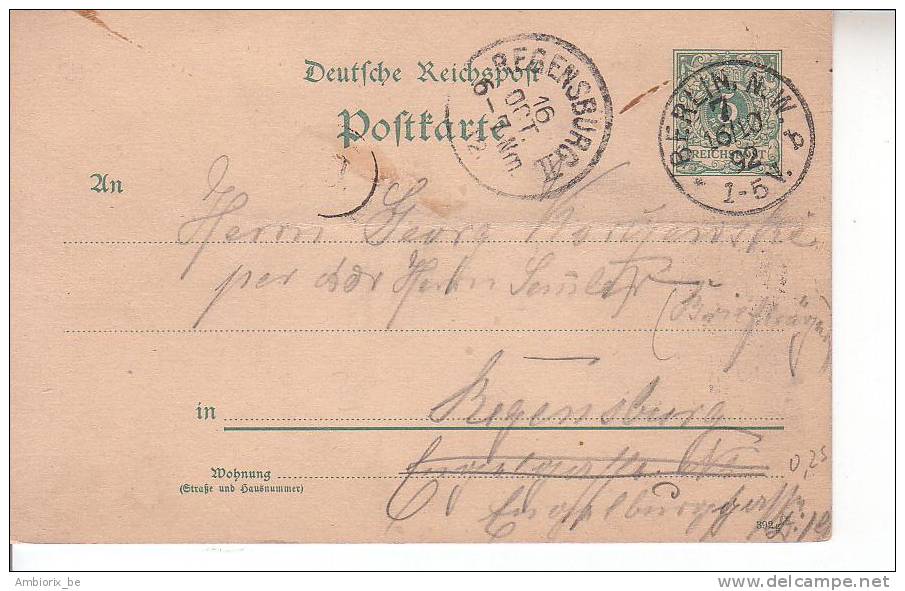 Deutsche Reichspost
Postkarte
REGENSBURG II
16
OCT.
6-7 Nm.
BERLIN, N.W.
7
16/10
92
1-5 V.
REICHSPOST
An
Herrn Georg
per Adr Herrn
(Briefträger)
in Regensburg
Wohnung
(Straße und Hausnummer)
0,25
392
Ambiorix_be
www.delcampe.net